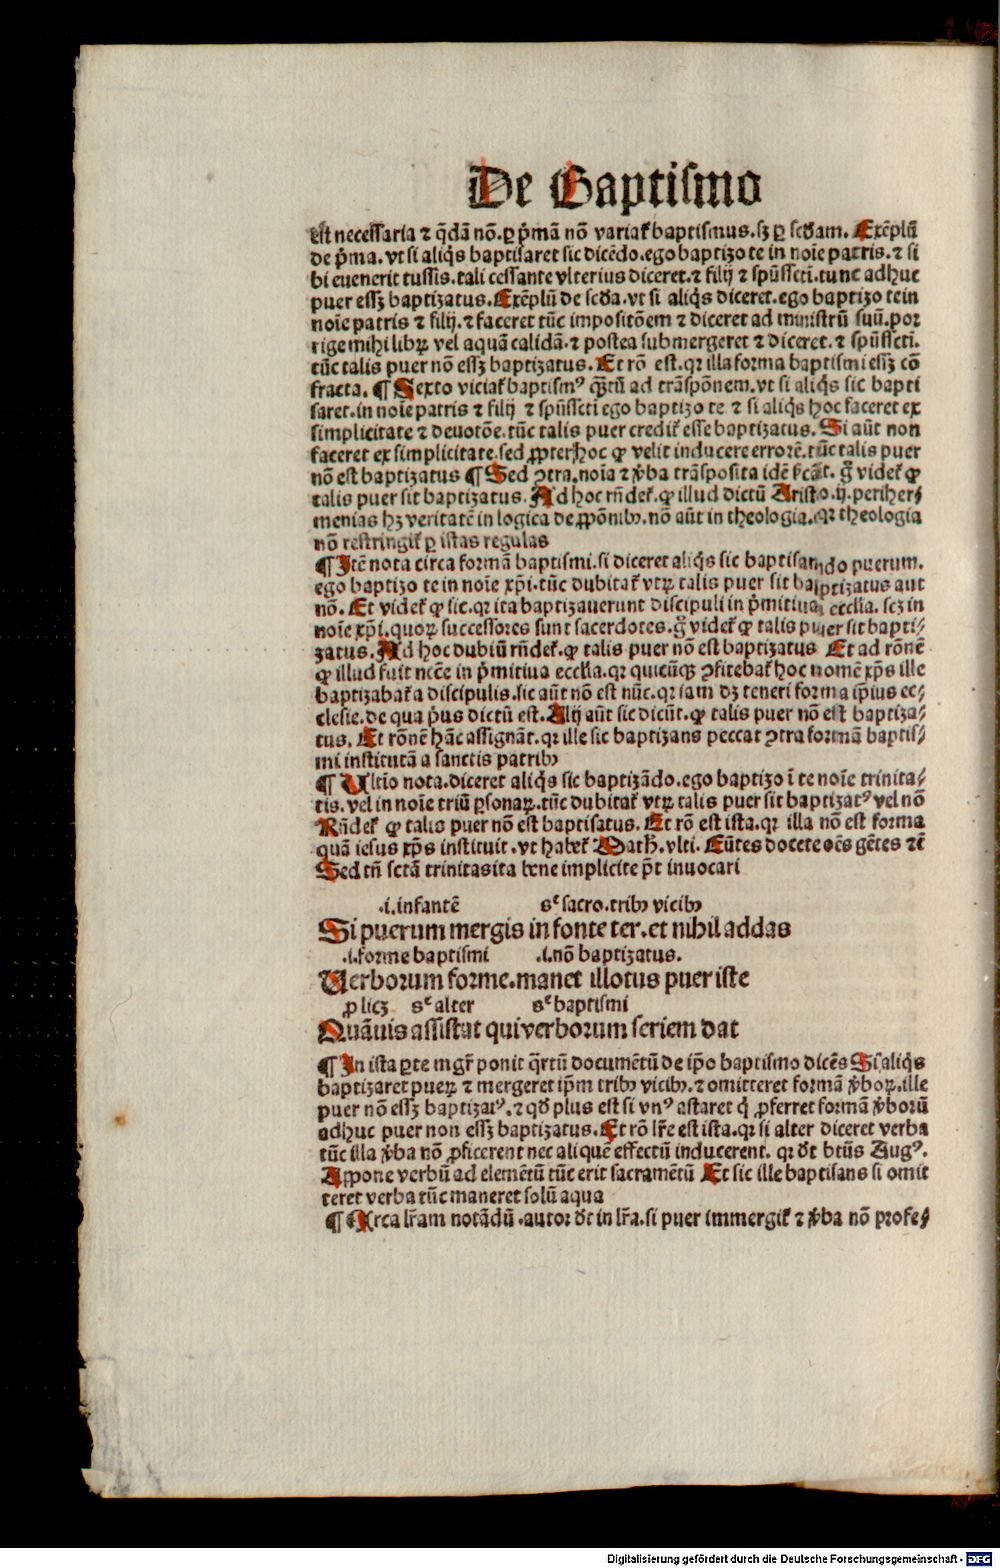 De Baptismo
est necessaria ⁊ q̄dā nō. ꝑ p̓mā nō variat᷑ baptismus. sꝫ ꝑ scd̓am. Exēplū
de p̓ma. vt si aliq̓s baptisaret sic dicēdo. ego baptizo te in noīe patris. ⁊ si
bi evenerit tussis. tali cessante vlterius diceret. ⁊ filij ⁊ spūssctī. tunc adhuc
puer essꝫ baptizatus. Exēplū de scd̓a. vt si aliq̓s diceret. ego baptizo te in
noīe patris ⁊ filij. ⁊ faceret tūc impositōem ⁊ diceret ad ministrū suū. por
rige mihi libꝝ vel aquā calidā. ⁊ postea submergeret ⁊ diceret. ⁊ spūssctī.
tūc talis puer nō essꝫ baptizatus. Et rō est. qꝛ illa forma baptismi essꝫ cō
fracta. ¶ Sexto viciat᷑ baptismꝰ q̄ꝫtū ad trāspōnem. vt si aliq̓s sic bapti
saret. in noīe patris ⁊ filij ⁊ spūsscti ego baptizo te ⁊ si aliq̓s hoc faceret ex
simplicitate ⁊ deuotōe. tūc talis puer credit᷑ esse baptizatus. Si aūt non
faceret ex simplicitate. sed ꝓpter hoc ꝙ velit inducere errorē. tūc talis puer
nō est baptizatus ¶ Sed ꝯtra. noīa ⁊ v̓ba trāsposita idē sīcāt. g̊ videt᷑ ꝙ
talis puer sit baptizatus. Ad hoc rn̄det᷑. ꝙ illud dictū Aristo. ij. periher⸗
menias hꝫ veritatē in logica de ꝓpōnibꝰ. nō aūt in theologia. qꝛ theologia
nō restringit᷑ ꝑ istas regulas
¶ Itē nota circa formā baptismi. si diceret aliq̓s sic baptisando puerum.
ego baptizo te in noīe xp̄i. tūc dubitat᷑ vtꝝ talis puer sit baptizatus aut
nō. Et videt᷑ ꝙ sic. qꝛ ita baptizauerunt discipuli in p̓mitiua ecclīa. scꝫ in
noīe xp̄i. quoꝝ successores sunt sacerdotes. g̊ videt᷑ ꝙ talis puer sit bapti⸗
zatus. Ad hoc dubiū rn̄det᷑. ꝙ talis puer nō est baptizatus Et ad rōnē
ꝙ illud fuit nc̄ce in p̓mitiua ecclīa. qꝛ quicūqꝫ ꝯfitebat᷑ hoc nomē xp̄s ille
baptizabat᷑ a discipulis. sic aūt nō est nūc. qꝛ iam dꝫ teneri forma ip̄ius ec⸗
clesie. de qua p̓us dictū est. Alij aūt sic dicūt. ꝙ talis puer nō est baptiza⸗
tus. Et rōnē hāc assignāt. qꝛ ille sic baptizans peccat ꝯtra formā baptis⸗
mi institutā a sanctis patribꝰ
¶ Vltīo nota. diceret aliq̓s sic baptizādo. ego baptizo ī te noīe trinita⸗
tis. vel in noīe triū ꝑsonaꝝ. tūc dubitat᷑ vtꝝ talis puer sit baptizatꝰ vel nō
Rn̄det᷑ ꝙ talis puer nō est baptisatus. Et rō est ista. qꝛ illa nō est forma
quā iesus xp̄s instituit. vt habet᷑ Math. vlti. Eūtes docete oēs gētes ⁊c̄
Sed tn̄ sctā trinitas ita bene implicite p̄t inuocari
.i. infantē sꝫ sacro. tribꝰ vicibꝰ
Si puerum mergis in fonte ter. et nihil addas
.i. forme baptismi .i. nō baptizatus.
Verborum forme. manet illotus puer iste
ꝓ licꝫ sꝫ alter sꝫ baptismi
Quāuis assistat qui verborum seriem dat
¶ In ista ꝑte mgr̄ ponit q̄rtū documētū de ip̄o baptismo dicēs Si aliq̓s
baptizaret pueꝝ ⁊ mergeret ip̄m tribꝰ vicibꝰ. ⁊ omitteret formā v̓boꝝ. ille
puer nō essꝫ baptizatꝰ. ⁊ qd̓ plus est si vnꝰ astaret q̓ ꝓferret formā v̓borū
adhuc puer non essꝫ baptizatus. Et rō lr̄e est ista. qꝛ si alter diceret verba
tūc illa v̓ba nō ꝓficerent nec aliquē effectū inducerent. qꝛ dt̄ btūs Augꝰ.
Appone verbū ad elemētū tūc erit sacramētū Et sic ille baptisans si omit
teret verba tūc maneret solū aqua
¶ Circa lr̄am notādū. autor dt̄ in lr̄a. si puer immergit᷑ ⁊ v̓ba nō profe⸗
Digitalisierung gefördert durch die Deutsche Forschungsgemeinschaft - DFG